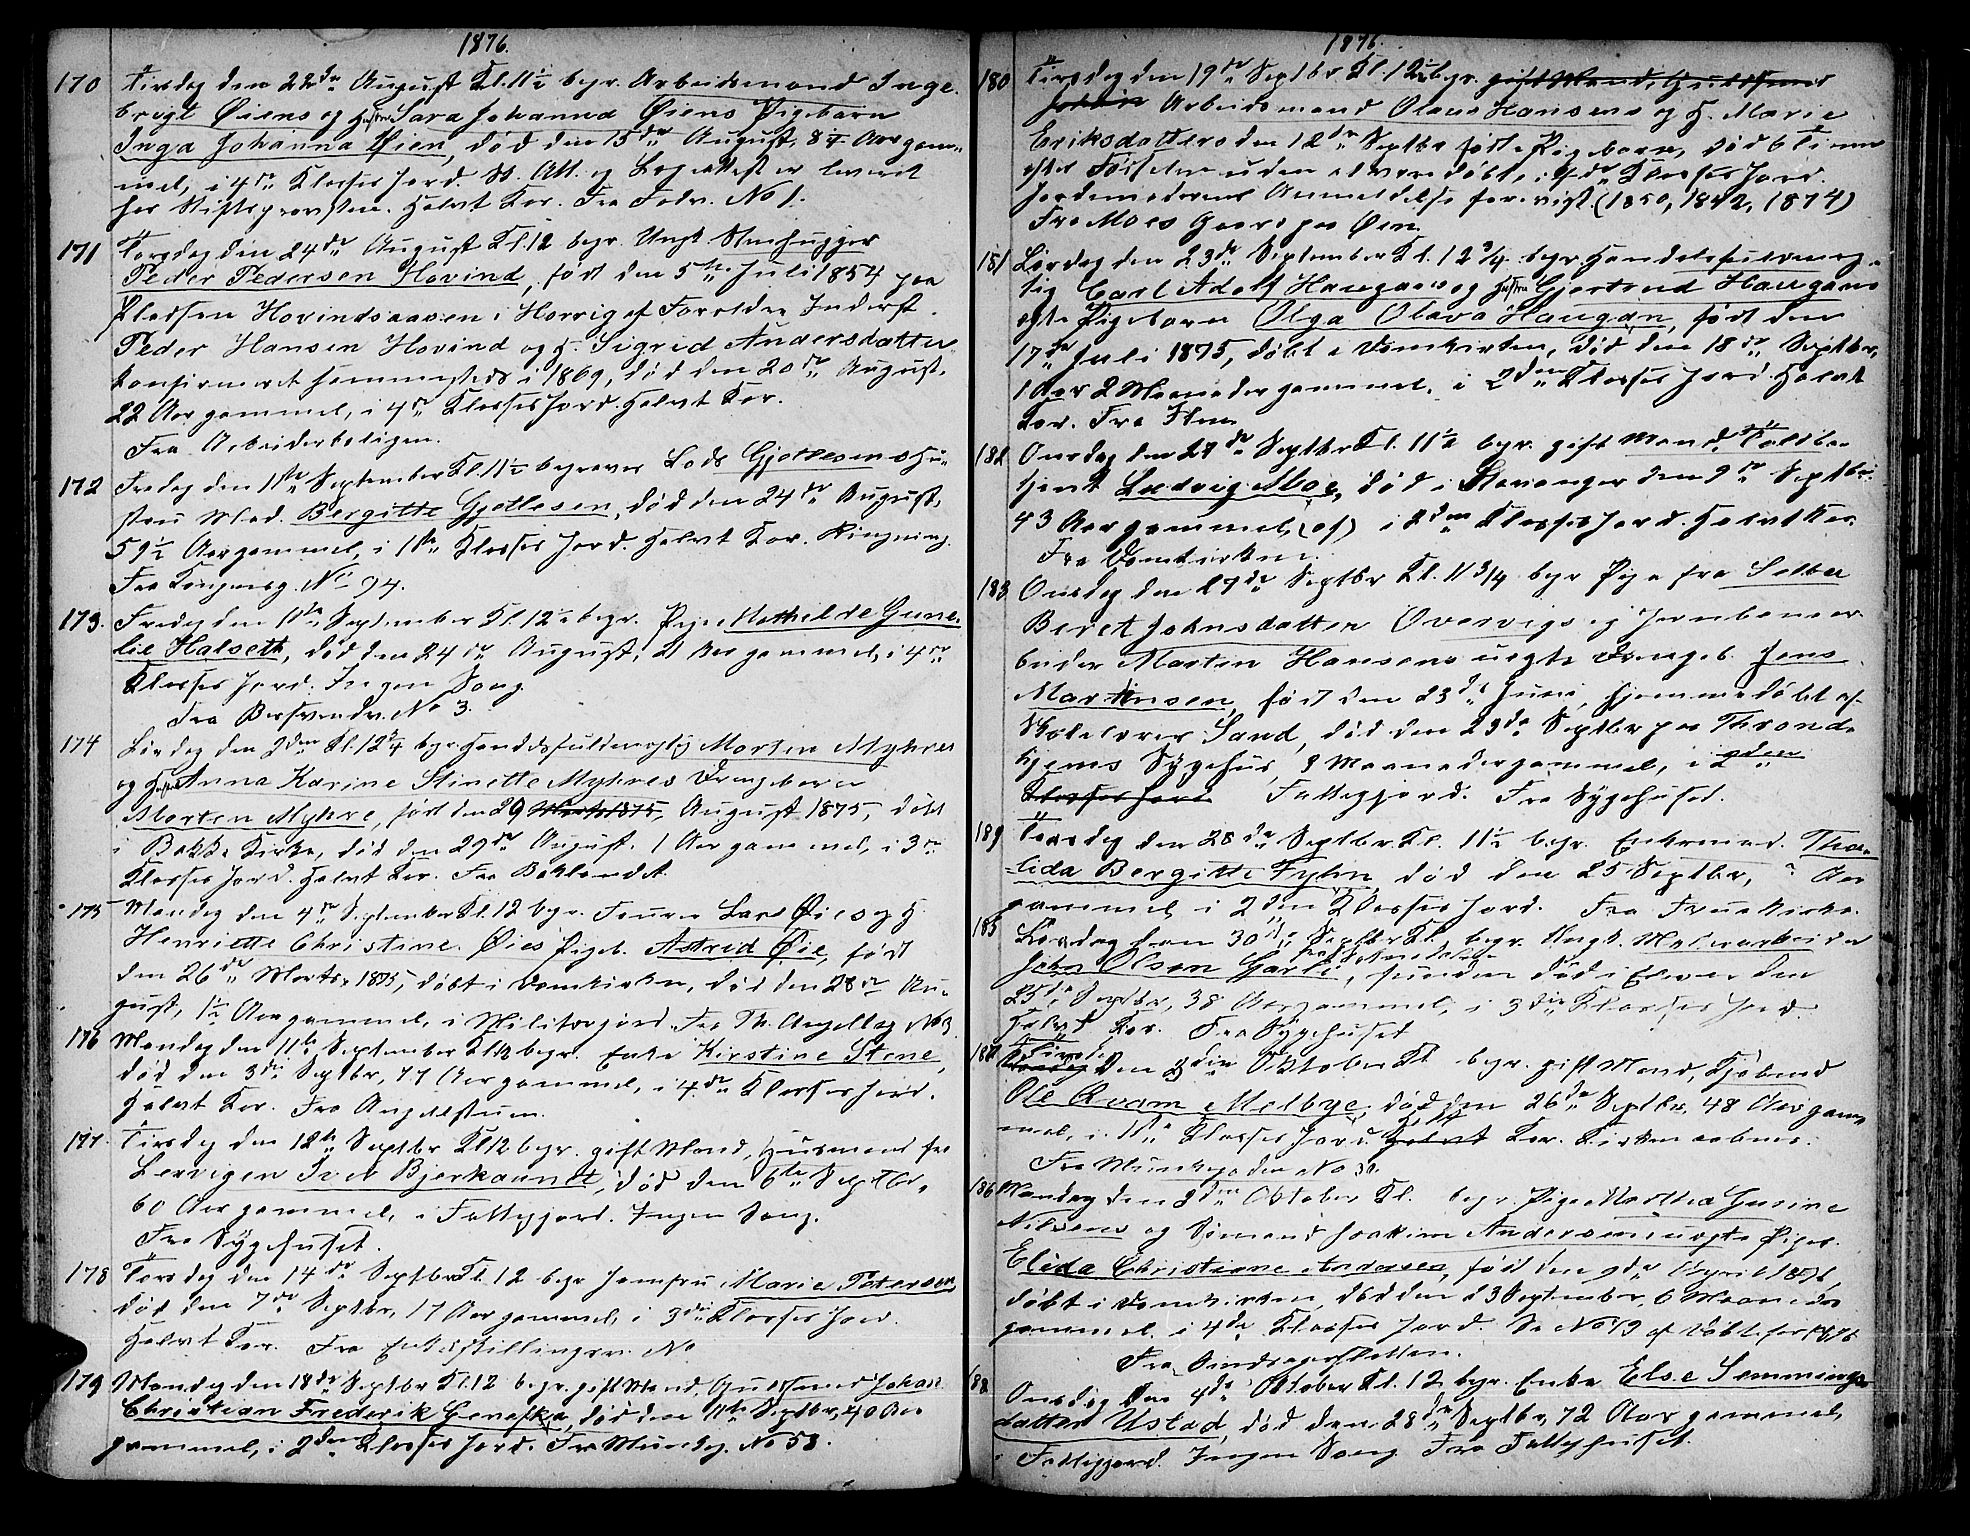 1876.
170 Tirsdag den 22de August Kl. 11½ begr. Arbeidsmand Inge-
brigt Øiens og Hustru Sara Johanna Øiens Pigebarn
Inga Johanna Øien, død den 15de August, Aar gam-
mel, i 4de Klasses Jord. Sk. Att. og er leveret
hos Stiftsprovsten. Halvt Kor. Fra No 1.
171 Torsdag den 24de August Kl. 12 begr. Ungk. Stenhugger
Peder Pedersen Hovind, født den 5te Juli 1854 paa
Pladsen Hovindsaasen i af Forældre Inderst
Peder Hansen Hovind og H. Sigrid Andersdatter,
konfirmeret sammesteds i 1869, død den 20de August,
22 Aar gammel, i 4de Klasses Jord. Halvt Kor.
Fra Arbeiderboligen.
172 Fredag den 1ste September Kl. 11½ begraves Lods Gjetlesens Hu-
stru Mad. Bergitte Gjetlesen, død den 24de August,
59½ Aar gammel, i 1ste Klasses Jord. Halvt Kor. Ringning.
Fra Kongensg. No 94.
173. Fredag den 1ste September Kl. 12½ begr. Pige Mathilde Gune-
lie Halseth, død den 24de August, 21 Aar gammel, i 4de
Klasses Jord. Ingen Sang.
Fra No 3.
174 Lørdag den 2den Kl. 12¾ begr. Handelsfuldmægtig Morten Myhres
og Hustru Anna Karine Stinette Myhres Drengebarn
Morten Myhre, født den 29 Marts 1875, August 1875, døbt
i Bakke Kirke, død den 29de August, 1 Aar gammel, i 3de
Klasses Jord. Halvt Kor. Fra Baklandet.
175 Mandag den 4de September Kl. 12 begr. Lars Øies og H.
Henriette Christine Øies Pigeb. Astrid Øie, født
den 26de Marts 1875, døbt i Domkirken, død den 28de Au-
gust, 1½ Aar gammel, i Militærjord. Fra Th. Angells g. No 3
176 Mandag den 11te September Kl. 12 begr. Enke Kirstine Stene,
død den 3die Septbr, 77 Aar gammel, i 4de Klasses Jord.
Halvt Kor. Fra
177. Tirsdag den 12te Septbr Kl. 12 begr. gift Mand, Husmand fra
Iver Bjerkaunet, død den 6te Septbr,
60 Aar gammel, i Fattigjord. Ingen Sang.
Fra Sygehuset.
178 Torsdag den 14de Septbr Kl. 12 begr. Jomfru Marie Petersen,
død den 7de Septbr, 17 Aar gammel, i 3die Klasses Jord.
Halvt Kor. Fra No
179 Mandag den 18de Septbr Kl. 12 begr. gift Mand, Guldsmed Johan
Christian Frederik død den 11te Septbr, 40 Aar
gammel, i 2den Klasses Jord. Fra Munkeg. No 53.
1876.
180 Tirsdag den 19de Septbr Kl. 12½ begr. gift Mand, Guldsmed
Johan Arbeidsmand Olaus Hansens og H. Marie
Eriksdatters den 12te Septbr fødte Pigebarn, død 6 Timer
efter Fødselen uden at være døbt, i 4de Klasses Jord.
Jordemoderens Anmeldelse forevist. (1850, 1842, 1874)
Fra Moes Gaard paa Øren.
181 Lørdag den 23de September Kl. 12¾ begr. Handelsfuldmæg-
tig Carl Adolf Haugans og Hustru Gjertrud Haugans
ægte Pigebarn Olga Olava Haugan, født den
17de Juli 1875, døbt i Domkirken, død den 18de Septbr,
1 Aar 2 Maaneder gammel, i 2den Klasses Jord. Halvt
Kor. Fra Ilen.
182 Onsdag den 27de Septbr Kl. 11½ begr. gift Mand, Toldbe-
tjent Ludvig Moe, død i Stavanger den 9de Septbr.
43 Aar gammel, (of) i 2den Klasses Jord. Halvt Kor.
Fra Domkirken.
183 Onsdag den 27de Septbr Kl. 11 3/4 begr. Pige fra Selbu
Beret Johnsdatter Overvigs og Jernbanear-
beider Martin Hansens uægte Drengeb. Jens
Martinsen, født den 23de Juni, hjemmedøbt af
Skolelærer Sand, død den 23de Septbr paa Thrond-
hjems Sygehus, Maaneder gammel, i 2den
Klasses Jord Fattigjord. Fra Sygehuset.
184 Torsdag den 28de Septbr Kl. 11½ begr. Enkemad. Tho-
lida Bergitte Fyhn, død den 25 Septbr, Aar
gammel i 2den Klasses Jord. Fra Frue Kirke.
185 Lørdag den 30te Septbr Kl. begr. Ungk. Malerarbeider
John Olsen Garli, funden død i Elven den
25de Septbr, 38 Aar gammel, i 3die Klasses Jord.
Halvt Kor. Fra Sygehuset
187 Tirsdag Mandag den 3die Oktober Kl. begr. gift Mand, Kjøbmd
Ole Qvam Melbye, død den 26de Septbr, 48 Aar gam-
mel, i 1ste Klasses Jord. Helt Halvt Kor. Kirken aabnes.
Fra Munkegaden No 30.
186 Mandag den 2den Oktober Kl. begr. Pige Marthea Gusine
Nilsens og Sømand Joakim Andersens uægte Pigeb.
Elida Christiane Andersen, født den 9de April 1876,
døbt i Domkirken, død den 23 September, 6 Maaneder
gammel, i 4de Klasses Jord. Se No 119 af Døbte for 1876
Fra
188 Onsdag den 4de Oktober Kl. 12 begr. Enke Else Semmings-
datter Ustad, død den 28de Septbr, 72 Aar gammel,
i Fattigjord. Ingen Sang. Fra Fattighuset.